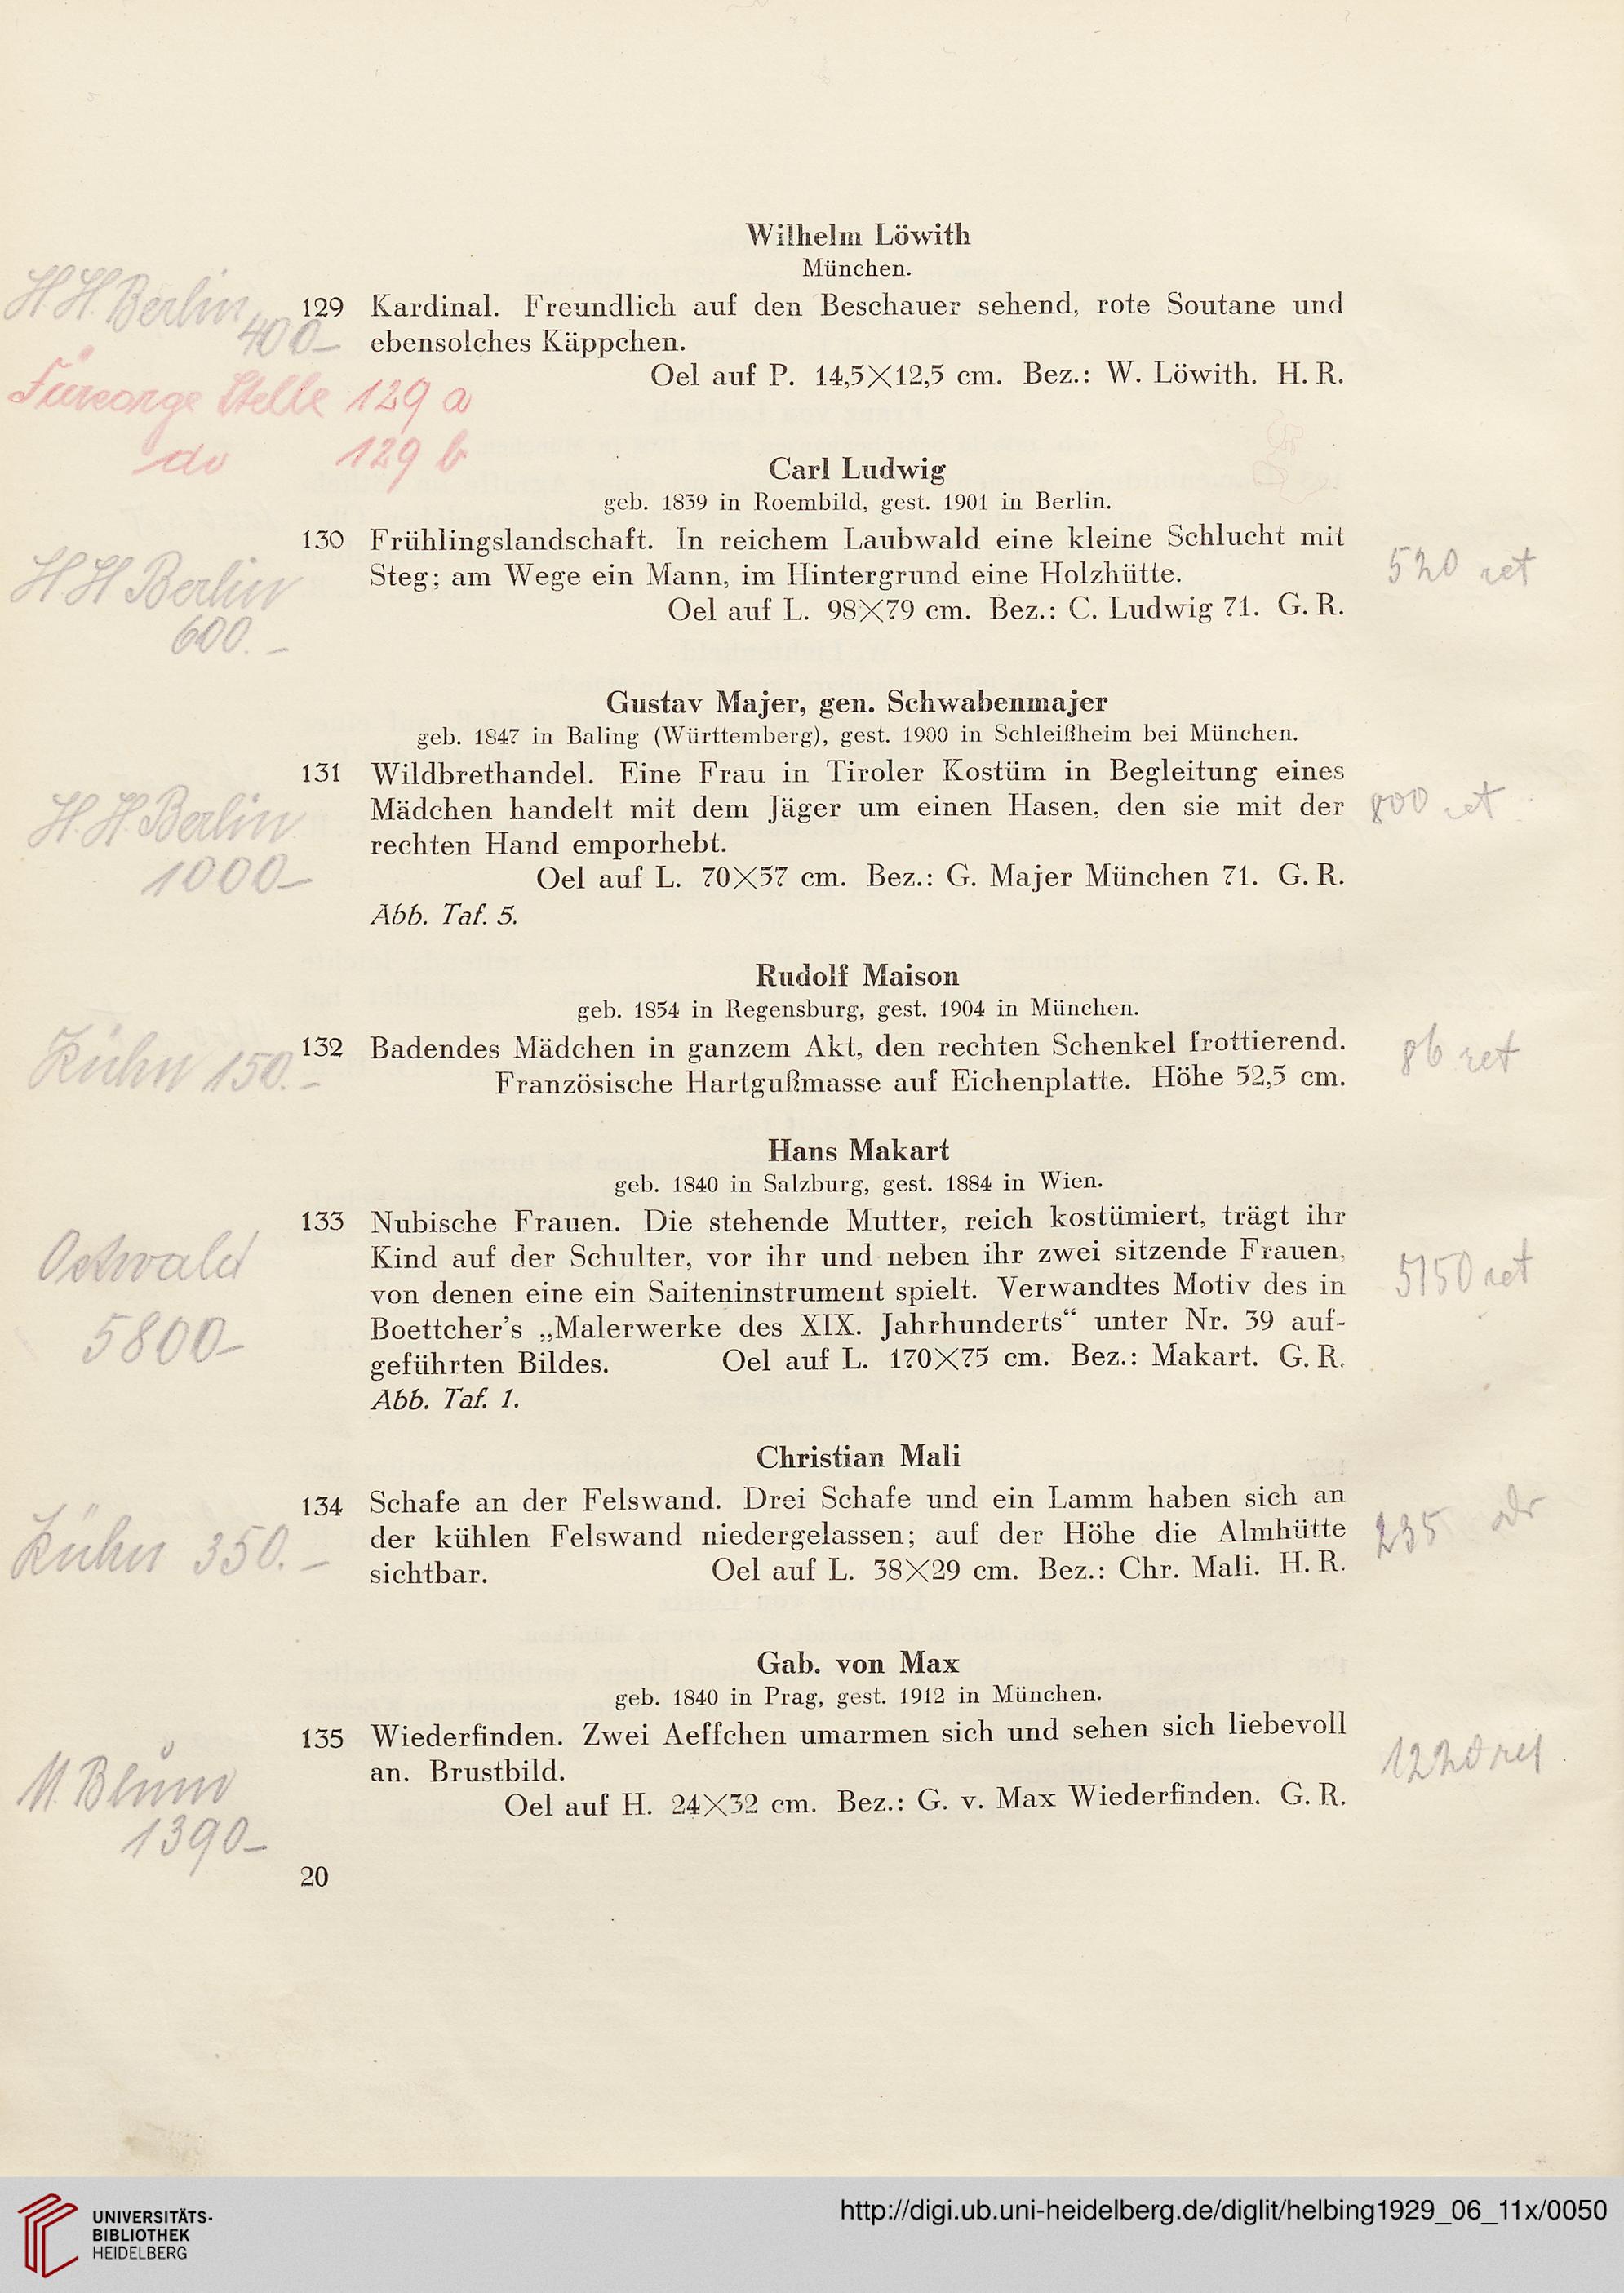 Wilhelm Löwith
München.
H. H. Berlin
400.–
129 Kardinal. Freundlich auf den Beschauer sehend, rote Soutane und
ebensolches Käppchen.
Oel auf P. 14,5×12,5 cm. Bez.: W. Löwith. H. R.
Fürsorge Stelle 129 a
do 129 b
Carl Ludwig
geb. 1839 in Roembild, gest. 1901 in Berlin.
130 Frühlingslandschaft. In reichem Laubwald eine kleine Schlucht mit
Steg; am Wege ein Mann, im Hintergrund eine Holzhütte.
Oel auf L. 98×79 cm. Bez.: C. Ludwig 71. G. R.
H H Berlin
600.–
520 ret
Gustav Majer, gen. Schwabenmajer
geb. 1847 in Baling (Württemberg), gest. 1900 in Schleißheim bei München.
131 Wildbrethandel. Eine Frau in Tiroler Kostüm in Begleitung eines
Mädchen handelt mit dem Jäger um einen Hasen, den sie mit der
rechten Hand emporhebt.
Oel auf L. 70×57 cm. Bez.: G. Majer München 71. G. R.
Abb. Taf. 5.
H. H. Berlin
1000–
800 ret
Rudolf Maison
geb. 1854 in Regensburg, gest. 1904 in München.
132 Badendes Mädchen in ganzem Akt, den rechten Schenkel frottierend.
Französische Hartgußmasse auf Eichenplatte. Höhe 52,5 cm.
Kühn 150.–
86 ret
Hans Makart
geb. 1840 in Salzburg, gest. 1884 in Wien.
133 Nubische Frauen. Die stehende Mutter, reich kostümiert, trägt ihr
Kind auf der Schulter, vor ihr und neben ihr zwei sitzende Frauen,
von denen eine ein Saiteninstrument spielt. Verwandtes Motiv des in
Boettcher's „Malerwerke des XIX. Jahrhunderts“ unter Nr. 39 auf-
geführten Bildes. Oel auf L. 170×75 cm. Bez.: Makart. G. R.
Abb. Taf. 1.
5800–
5150 ret
Christian Mali
134 Schafe an der Felswand. Drei Schafe und ein Lamm haben sich an
der kühlen Felswand niedergelassen; auf der Höhe die Almhütte
sichtbar. Oel auf L. 38×29 cm. Bez.: Chr. Mali. H. R.
Kühn 350.–
235
Gab. von Max
geb. 1840 in Prag, gest. 1912 in München.
135 Wiederfinden. Zwei Aeffchen umarmen sich und sehen sich liebevoll
an. Brustbild.
Oel auf H. 24×32 cm. Bez.: G. v. Max Wiederfinden. G. R.
M. Blum
1390–
1220 ret
20
UNIVERSITÄTS-
BIBLIOTHEK
HEIDELBERG
http://digi.ub.uni-heidelberg.de/diglit/helbing1929_06_11x/0050